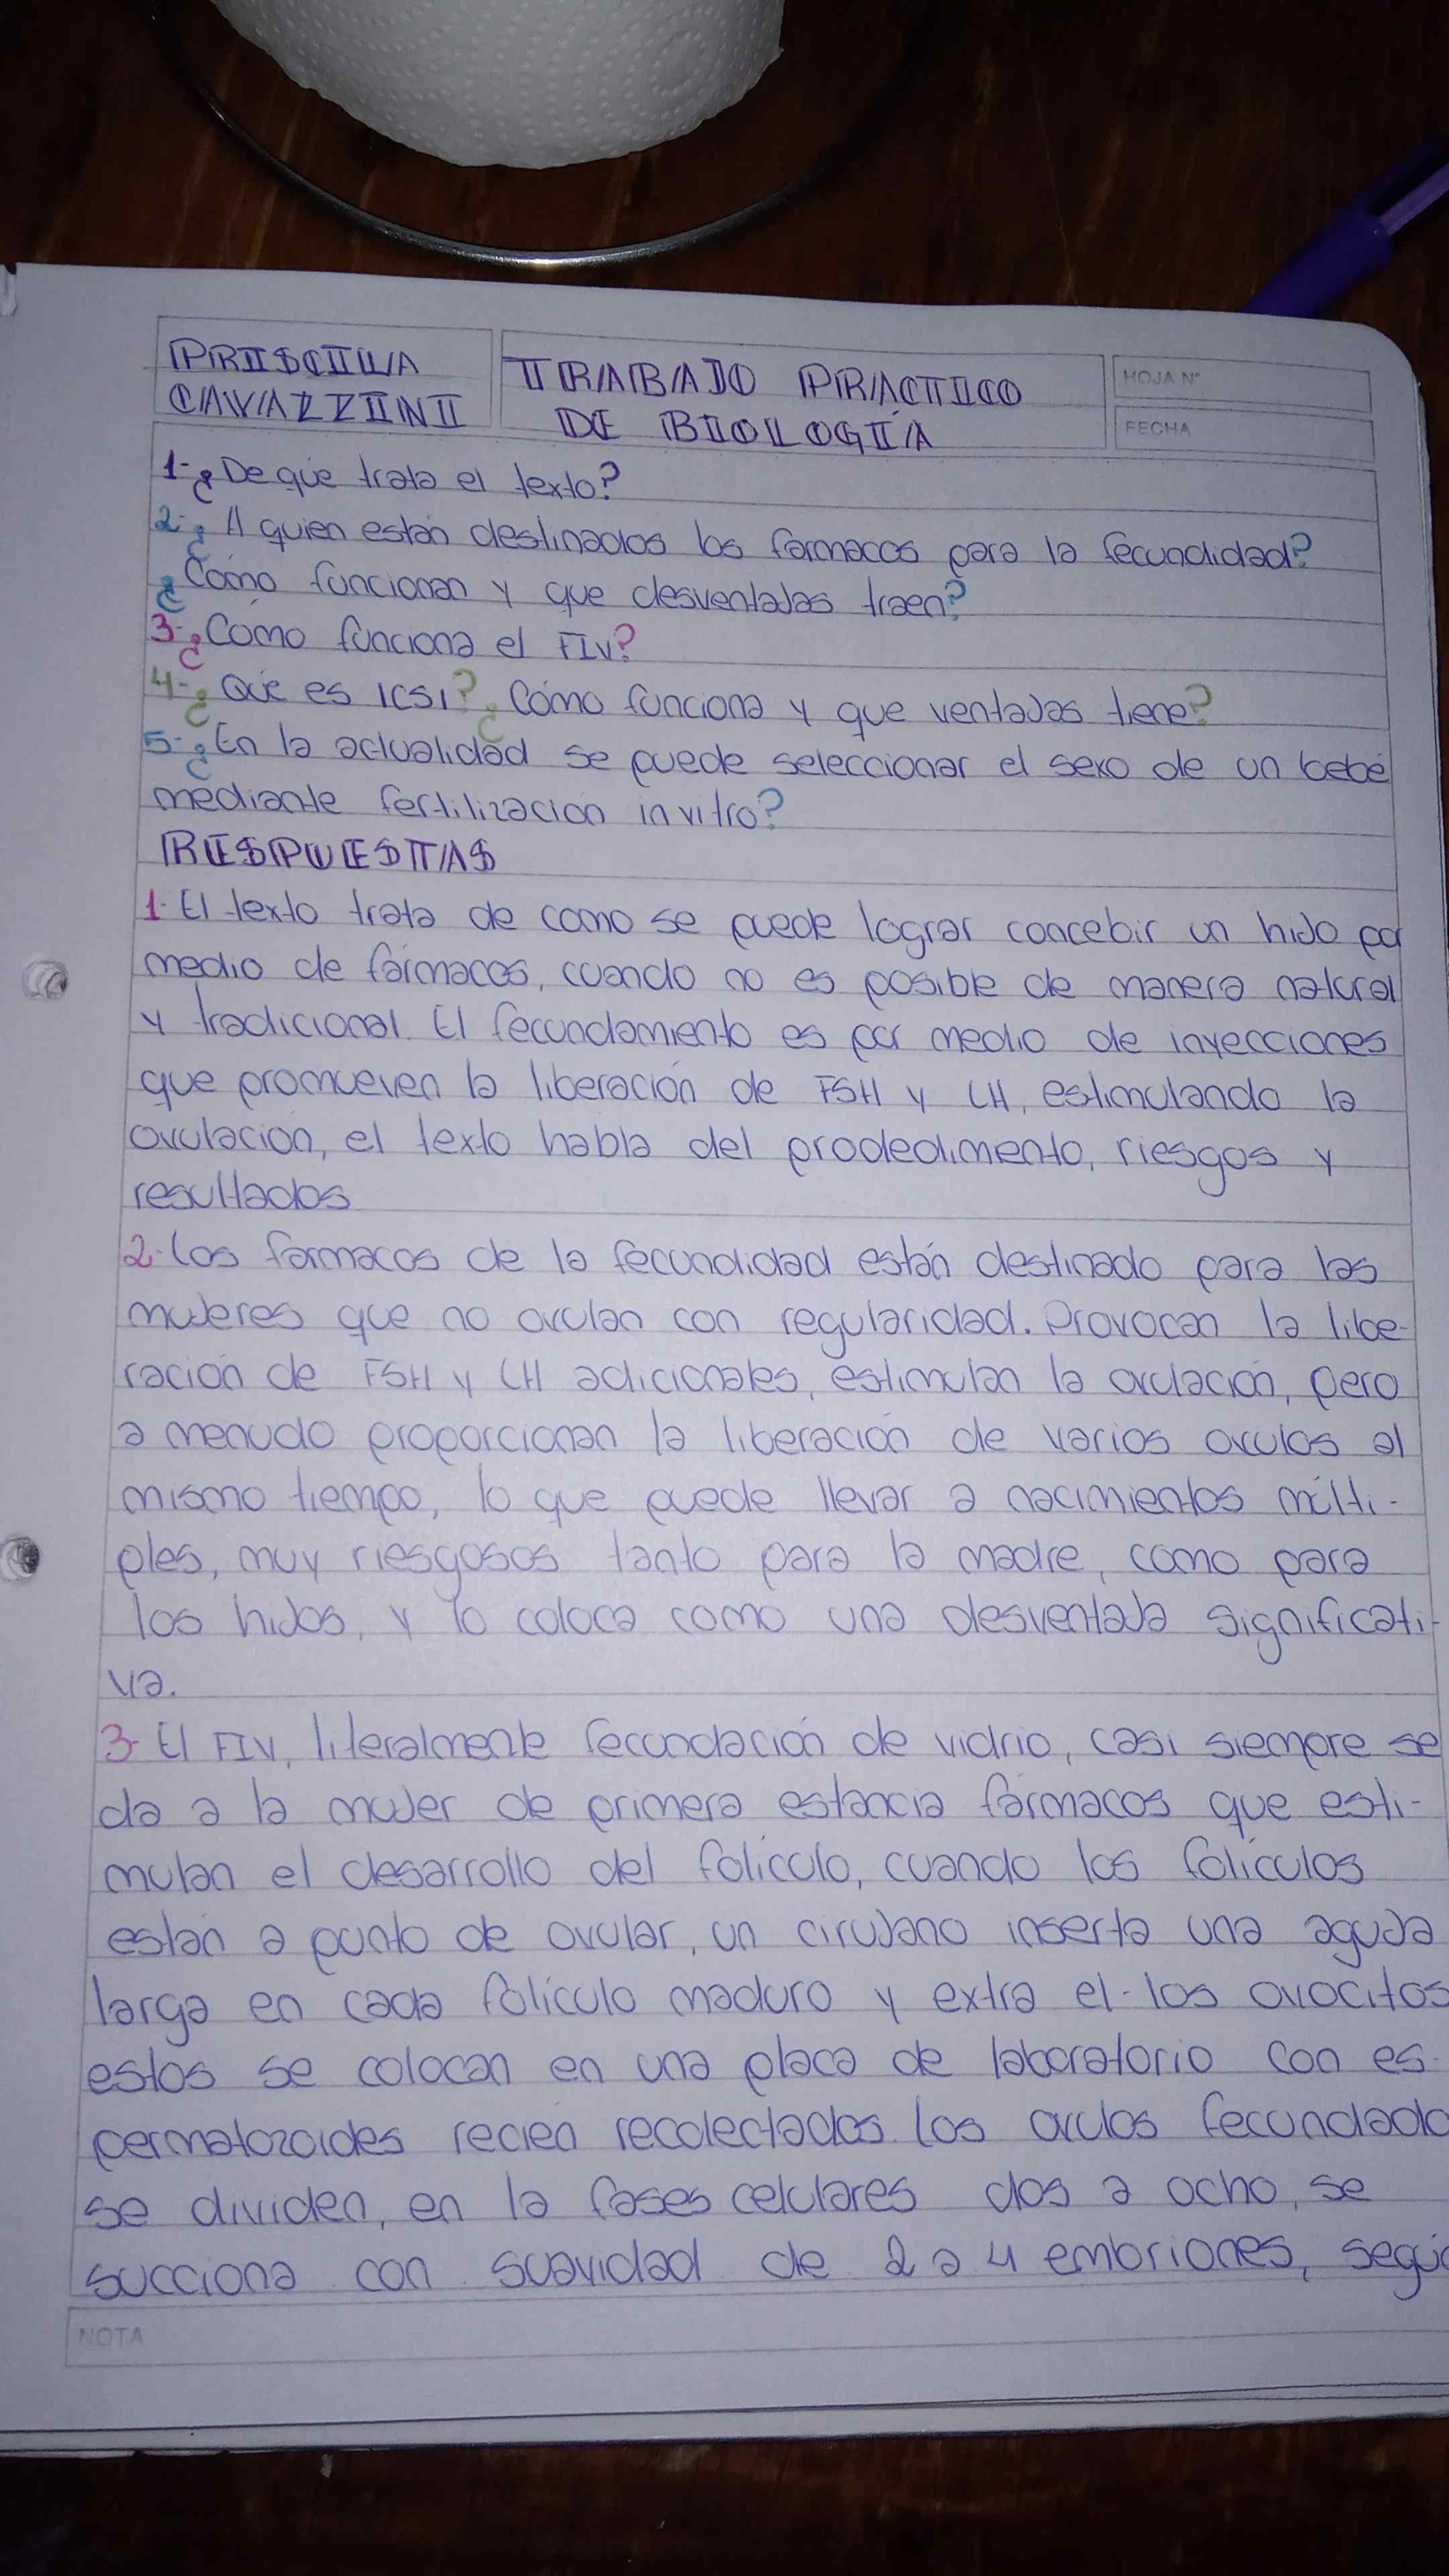 PRISCILA
CAVAZZINI
TRABAJO PRACTICO
DE BIOLOGÍA
HOJA N°
FECHA
1-¿De qué trata el texto?
2-¿A quien están destinados los farmacos para la fecundidad?
¿Cómo funcionan y que desventajas traen?
3-¿Cómo funciona el FIV?
4-¿Qué es ICSI? ¿Cómo funciona y que ventajas tiene?
5-¿En la actualidad se puede seleccionar el sexo de un bebé
mediante fertilización in vitro?
RESPUESTAS
1-El texto trata de como se puede lograr concebir un hijo por
medio de fármacos, cuando no es posible de manera natural
y tradicional. El fecundamiento es por medio de inyecciones
que promueven la liberación de FSH y LH, estimulando la
ovulación, el texto habla del prodedimento, riesgos y
resultados
2-Los farmacos de la fecundidad están destinado para las
mujeres que no ovulan con regularidad. Provocan la libe-
ración de FSH y LH adicionales, estimulan la ovulación, pero
a menudo proporcionan la liberación de varios ovulos al
mismo tiempo, lo que puede llevar a nacimientos múlti-
ples, muy riesgosos tanto para la madre, como para
los hijos, y lo coloca como una desventaja significati-
va.
3-El FIV, literalmente fecundación de vidrio, casi siempre se
da a la mujer de primera estancia fármacos que esti-
mulan el desarrollo del folículo, cuando los folículos
están a punto de ovular, un cirujano inserta una aguja
larga en cada folículo maduro y extra el-los ovocitos
estos se colocan en una placa de laboratorio con es-
permatozoides recien recolectados. Los ovulos fecundado
se dividen, en la fases celulares dos a ocho, se
succiona con suavidad de 2 a 4 embriones, segú
NOTA